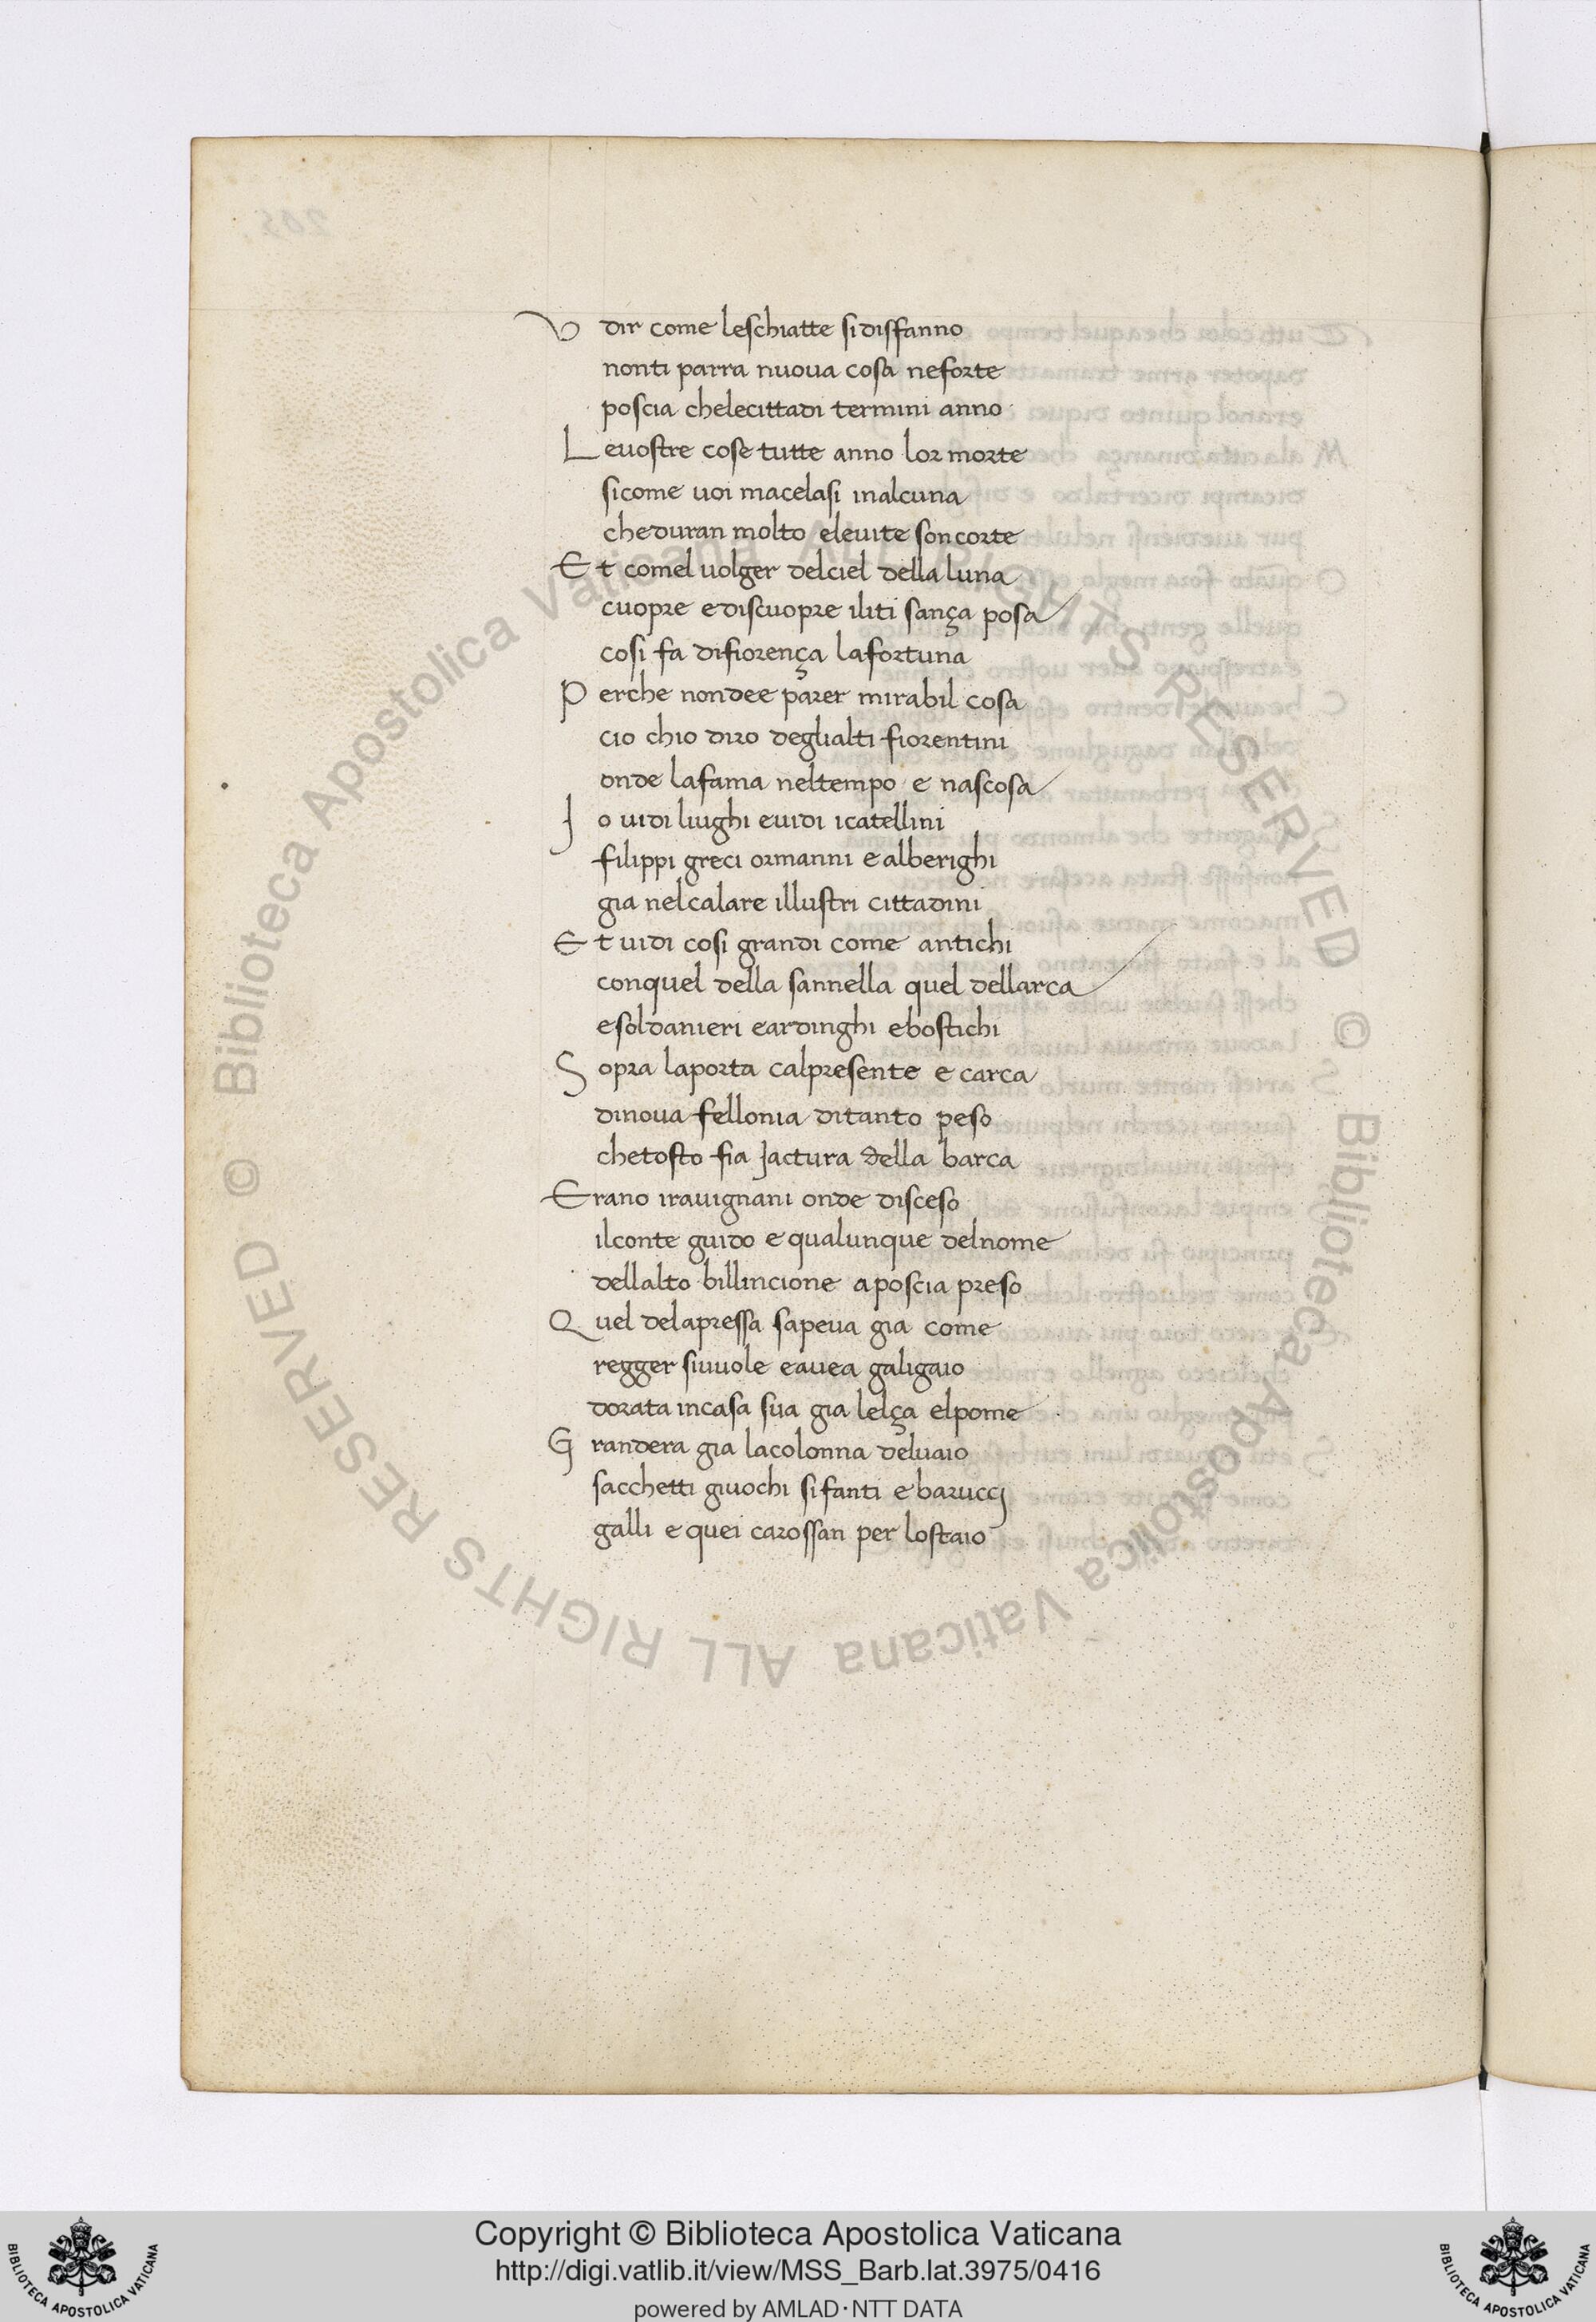 V dir come leschiatte si disfanno
nonti parra nuova cosa neforte
poscia chelecittadi termini anno
L evostre cose tutte anno lor morte
sicome voi macelasi inalcuna
cheduran molto elevite son corte
E t comel volger delciel della luna
cuopre ediscuopre iliti sança posa
cosi fa difiorença lafortuna
P erche nondee parer mirabil cosa
cio chio diro deglialti fiorentini
onde lafama neltempo e nascosa
I o vidi liughi evidi icatellini
filippi greci ormanni e alberighi
gia nelcalare illustri cittadini
E t vidi cosi grandi come antichi
conquel della sannella quel dellarca
esoldanieri eardinghi ebostichi
S opra laporta calpresente e carca
dinova fellonia ditanto peso
chetosto fia jactura della barca
Erano iravignani onde disceso
ilconte guido e qualunque delnome
dellalto billincione aposcia preso
Q uel delapressa sapeva gia come
regger sivuole eavea galigaio
dorata incasa sua gia lelça elpome
G randera gia lacolonna delvaio
sacchetti giuochi sifanti e barucci
galli e quei carossan per lostaio
Copyright © Biblioteca Apostolica Vaticana
http://digi.vatlib.it/view/MSS_Barb.lat.3975/0416
powered by AMLAD·NTT DATA